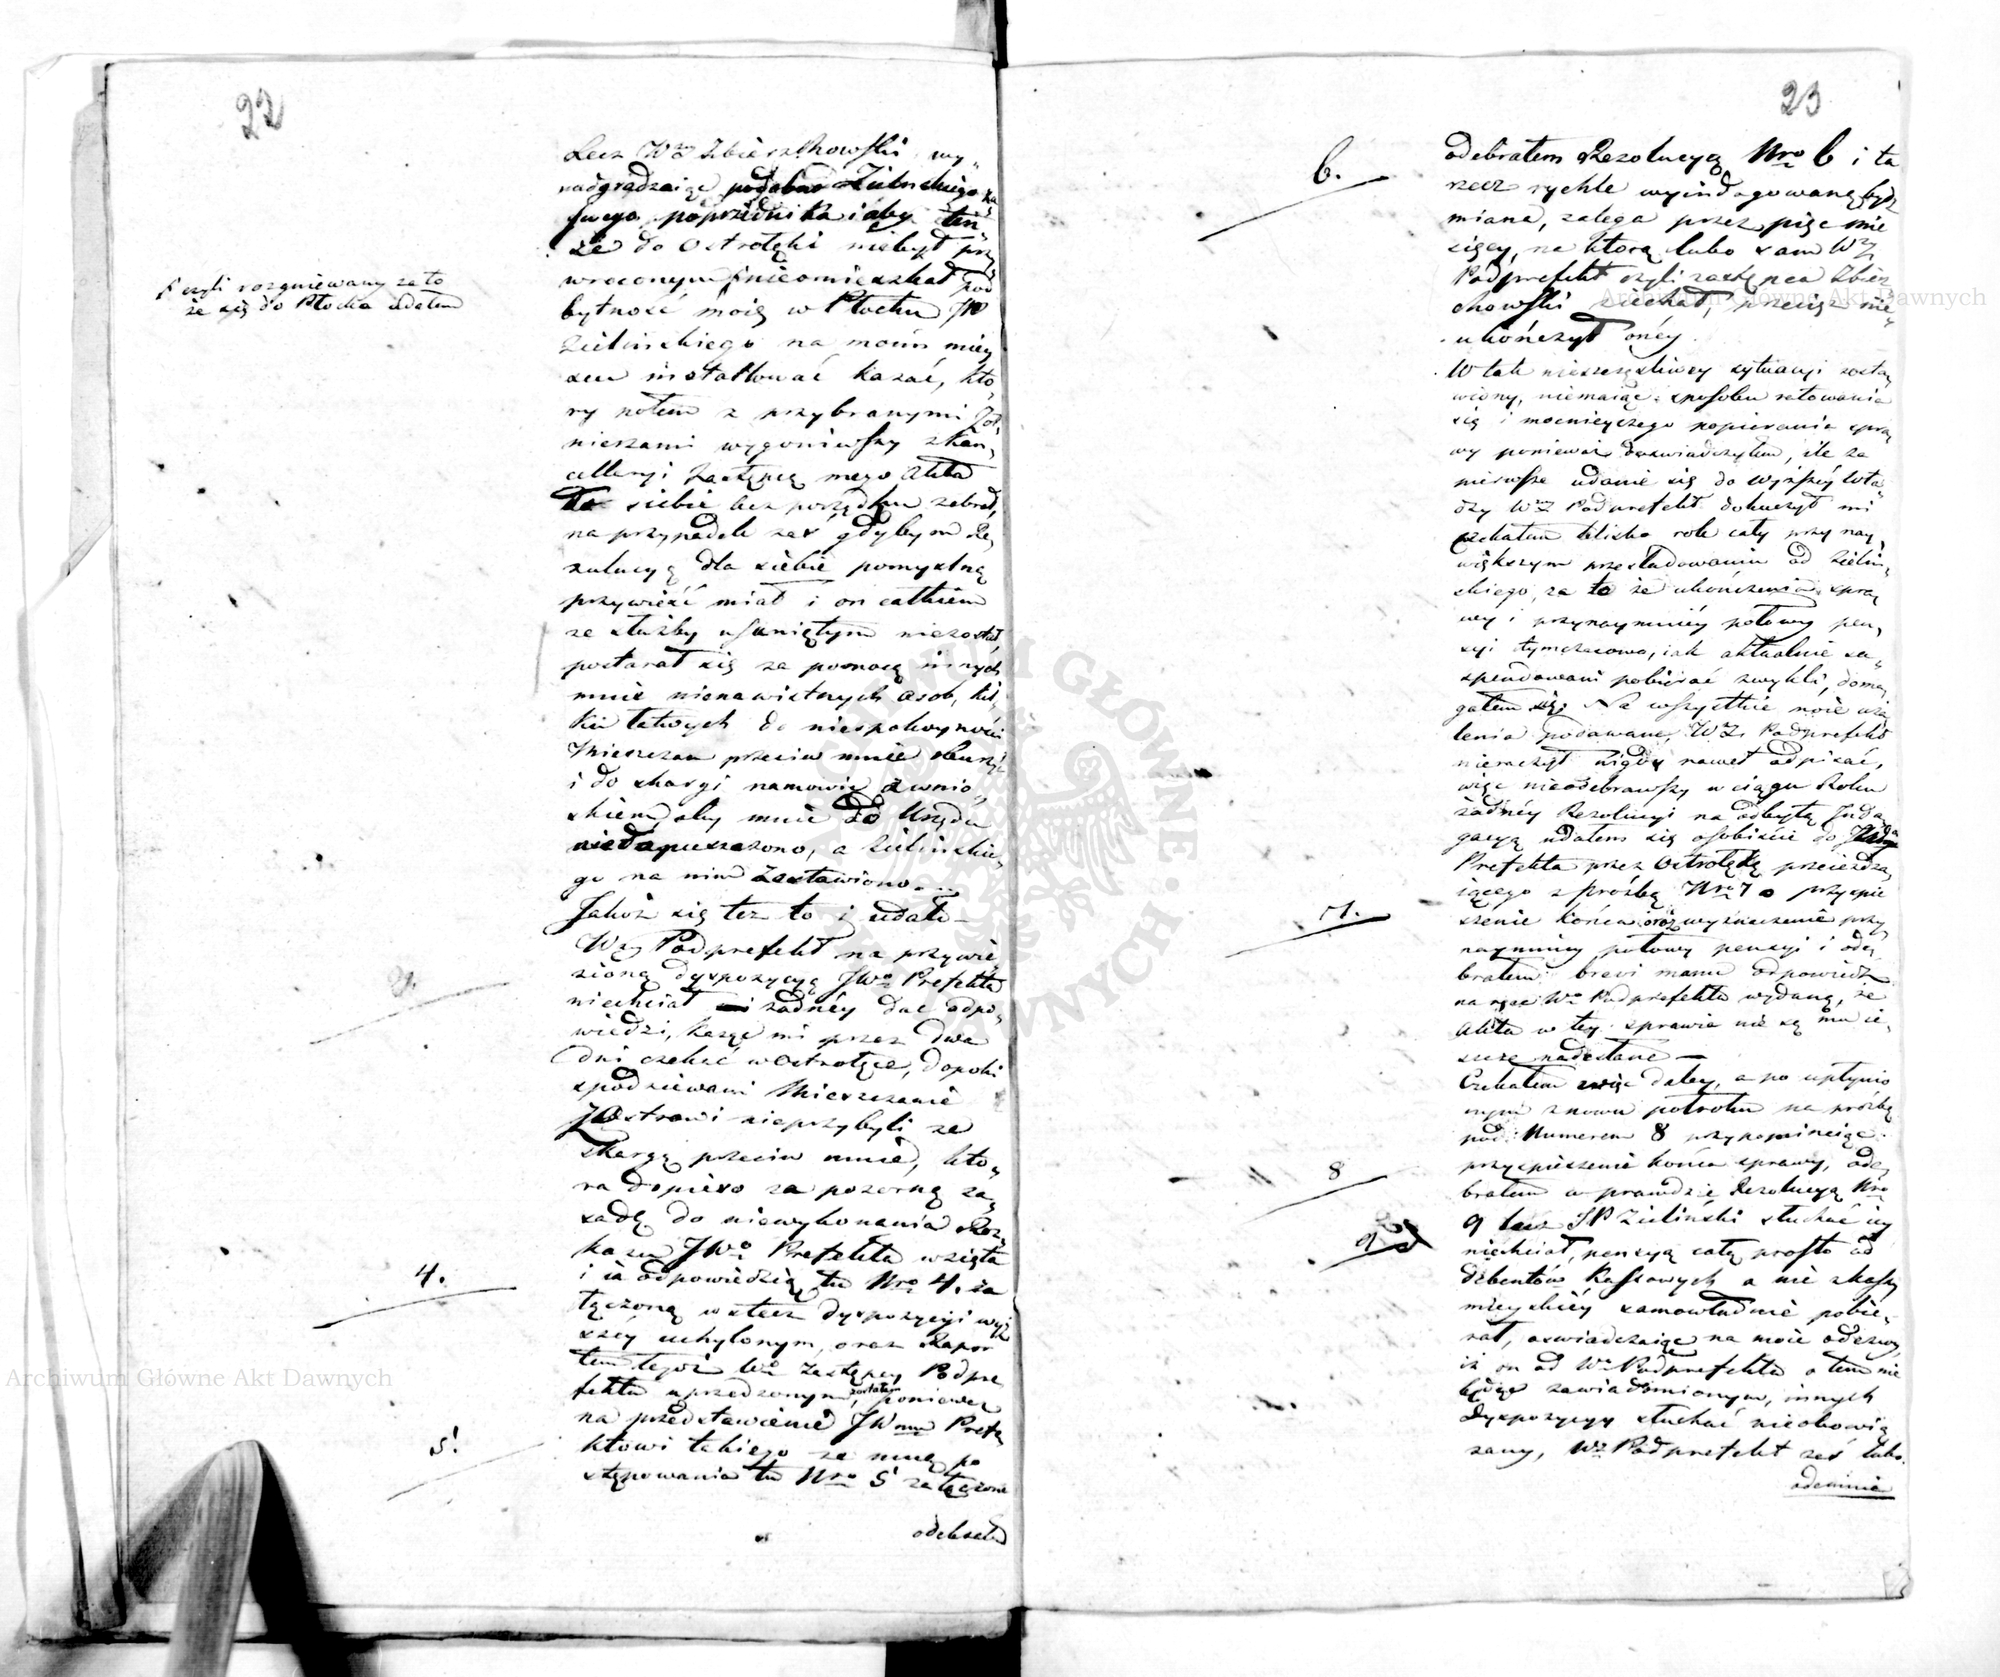 22
Lecz Wny Zbierzchowski, wy„
nadgradzaiąc podobno Zielinskiego za
swego poprzednika i aby ten„
że do Ostrołęki niebył przy
wroconym ſ nieomieszkał pod
ſ czyli rozgniewany za to
że się do Płocka udałem
bytność moią w Płocku JP
Zielinskiego na moim miey
scu installować kazać, kto„
ry potem z przybranymi Żoł„
nierzami wygoniwszy z kan„
cellaryi Zastępcę mego Akta
do siebie bez porządku zabrał,
na przypadek zaś gdybym Re„
zolucyą dla siebie pomyslną
przywieść miał i on całkiem
ze służby usuniętym niezostał,
postarał się za pomocą innych
mnie nienawistnych osob, kil„
ku łatwych do niespokoyności
Mieszczan przeciw mnie oburzyć
i do skargi namowić z wnio„
skiem, aby mnie do Urzędu
niedopuszczono, a Zielinskie„
go na nim zostawiono.
Jakoż się też to i udało –
Wny Podprefekt na przywie„
zioną dyspozycyą JWo Prefekta
niechciał żadnéy dać odpo„
wiedzi, każąc mi przez dwa
dni czekać w Ostrołęce, dopoki
spodziewani Mieszczanie
z Ostrowi nieprzybyli ze
skargą przeciw mnie, kto„
ra dopiero za pozorną za„
sadę do niewykonania Roz„
kazu JWo Prefekta wzięta
4.
i ia odpowiedzią tu Nro 4. za
łączoną wstecz dyspozycyi wyż
széy uchylonym, oraz Rapor
tem tegoż Wo Zastępcy Podpre
fekta uprzedzonym zostałem, ponieważ
na przedstawienie JWmu Prefe„
5.
ktowi takiego ze mną po
stępowania tu Nro 5 załączone
odebrałem
23
6.
odebrałem Rezolucyą Nro 6 i ta
rzecz rychle wyindagowaną być
miana, zalega przez pięć mie
sięcy, na ktorą lubo sam Wny
Podprefekt czyli zastępca Zbierz
chowski ziechał, przecież nie„
ukończył onéy.
W tak nieszczęśliwey sytuacyi zosta„
wiony, niemaiąc sposobu ratowania
się i mocnieyszego popierania spra„
wy ponieważ doswiadczyłem, ile za
pierwsze udanie się do wyższéy wła„
dzy Wny Podprefekt dokuczył mi
czekałem blisko rok cały przy nay„
większym przesladowaniu od Zielin„
skiego, za to że ukończenia spra„
wy i przynaymniéy połowy pen„
syi tymczasowo, iak aktualnie za„
spendowani pobierać zwykli, doma„
gałem się. Na wszystkie moie uża„
lenia podawane, WZ. Podprefekt
nieraczył nigdy nawet odpisać,
więc nieodebrawszy w ciągu Roku
żadnéy Rezolucyi na odbytą Inda„
gacyą udałem się osobiście do
Prefekta przez Ostrołękę przeieżdża„
7.
iącego z prośbą Nro 7 o przyspie
szenie końca oraz wyznaczenie przy
naymniey połowy pensyi i ode„
brałem brevi manu odpowiedź
na ręce Wo Podprefekta wydaną, że
Akta w tey sprawie nie są mu ie„
szcze nadesłane –
Czekałem więc daley, a po upłynio
nym znowu połroku na prośbę
pod Numerem 8 przypominaiąc
8
przyspieszenie końca sprawy, ode„
brałem w prawdzie Rezolucyą Nro
9
9 lecz JP Zieliński słuchać iey
niechciał, pensyą całą prosto od
debentów Kassowych a nie z kassy
mieyskiéy samowładnie pobie„
rał, oswiadczaiąc na moie odezwy
iż on od Wo Podprefekta o tem nie
będąc zawiadomionym, innych
Dyspozycyy słuchać nieobowią
zany, Wy Podprefekt zaś lubo
odemnie
Archiwum Główne Akt Dawnych
Archiwum Główne Akt Dawnych